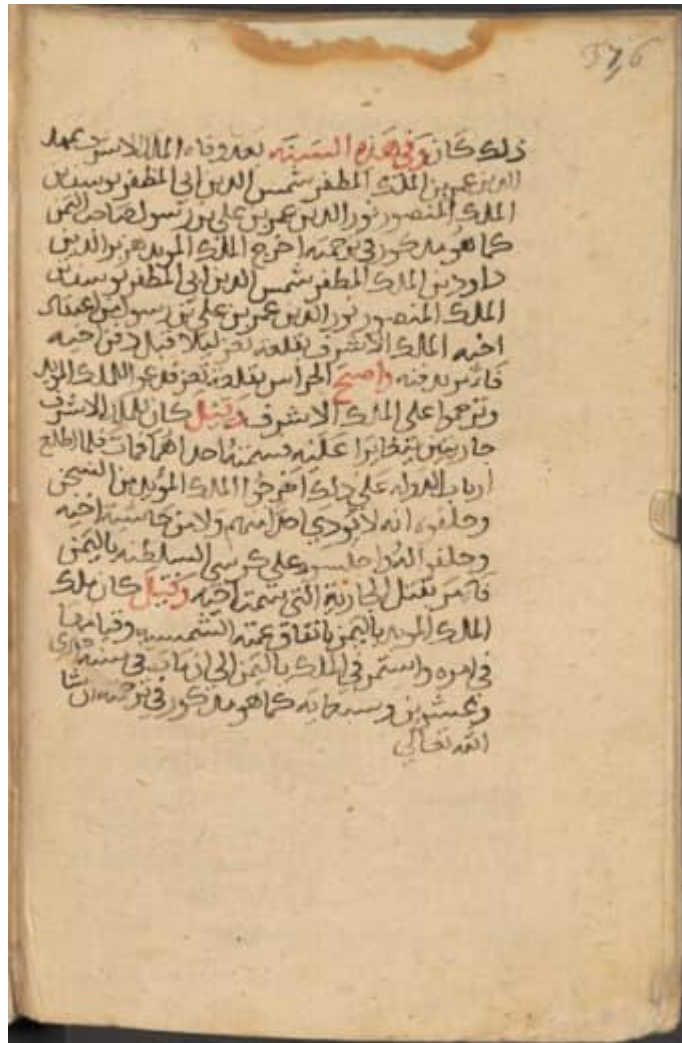 376
ذلك كان وفي هذه السنة بعد وفاة الملك الاشرف ممهد
الدين عمر بن الملك المظفر شمس الدين ابي المظفر يوسف بن
الملك المنصور نور الدين عمر بن علي بن رسول صاحب اليمن
كما هو مذكور في ترجمته اخرج الملك المويد هزبر الدين
داود بن الملك المظفر شمس الدين ابي المظفر يوسف بن
الملك المنصور نور الدين عمر بن علي بن رسول من اعتقال
اخيه الملك الاشرف بقلعة تعز ليلا قبل دفن اخيه
فامر بدفنه واصبح الحراس بقلعة تعز فدعو للملك المويد
وترحموا على الملك الاشرف وقيل كان للملك الاشرف
جاريتين علىه فسمته احداهما فمات فلما اطلع
ارباب الدوله علي ذلك اخرجوا الملك المؤيد من السجن
وحلفوه انه لا يؤدي احدا منهم ولا من حاشية اخيه
وحلفوا له واجلسوه علي كرسي السلطنه باليمن
فامر بقتل الجارية التي سمت اخيه وقيل كان ملك
الملك المويد باليمن باتفاق عمته الشمسيه وقيامها
في امره واستمر في الملك باليمن الى ان مات في سنه احدى
وعشرين وسبعمايه كما هو مذكور في ترجمته ان شا
الله تعالي